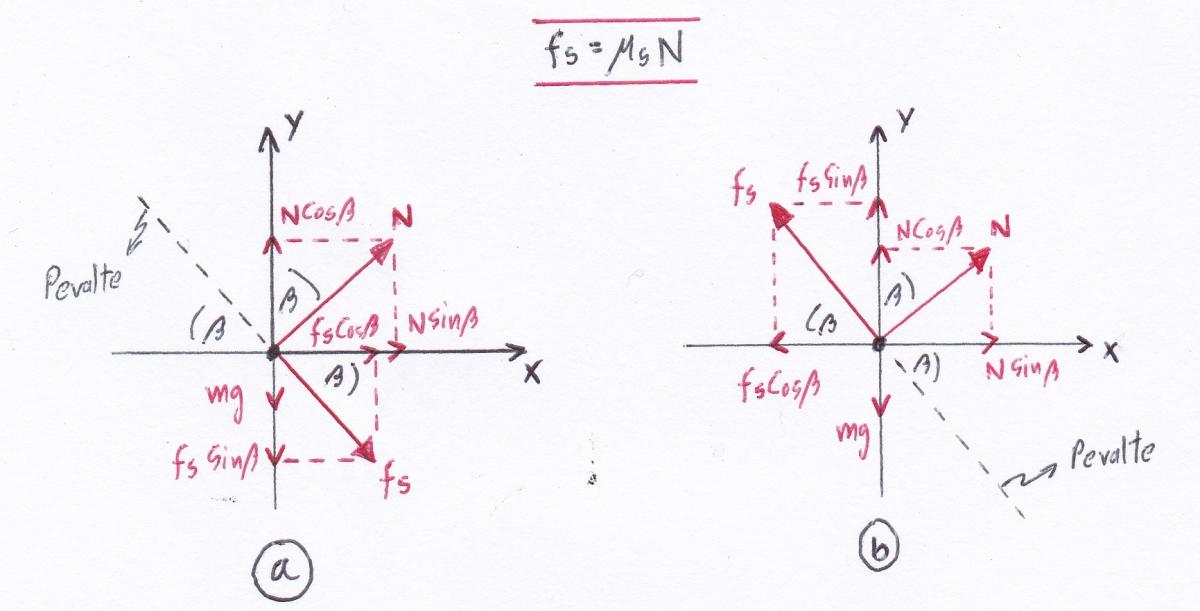 fs = μsN
Y
NCosβ
N
Pevalte
β
(β
fsCosβ
NSinβ
X
β)
mg
fs Sinβ
fs
a
Y
fs
fsSinβ
NCosβ
N
β)
(β
X
β)
fsCosβ
NSinβ
mg
Pevalte
b